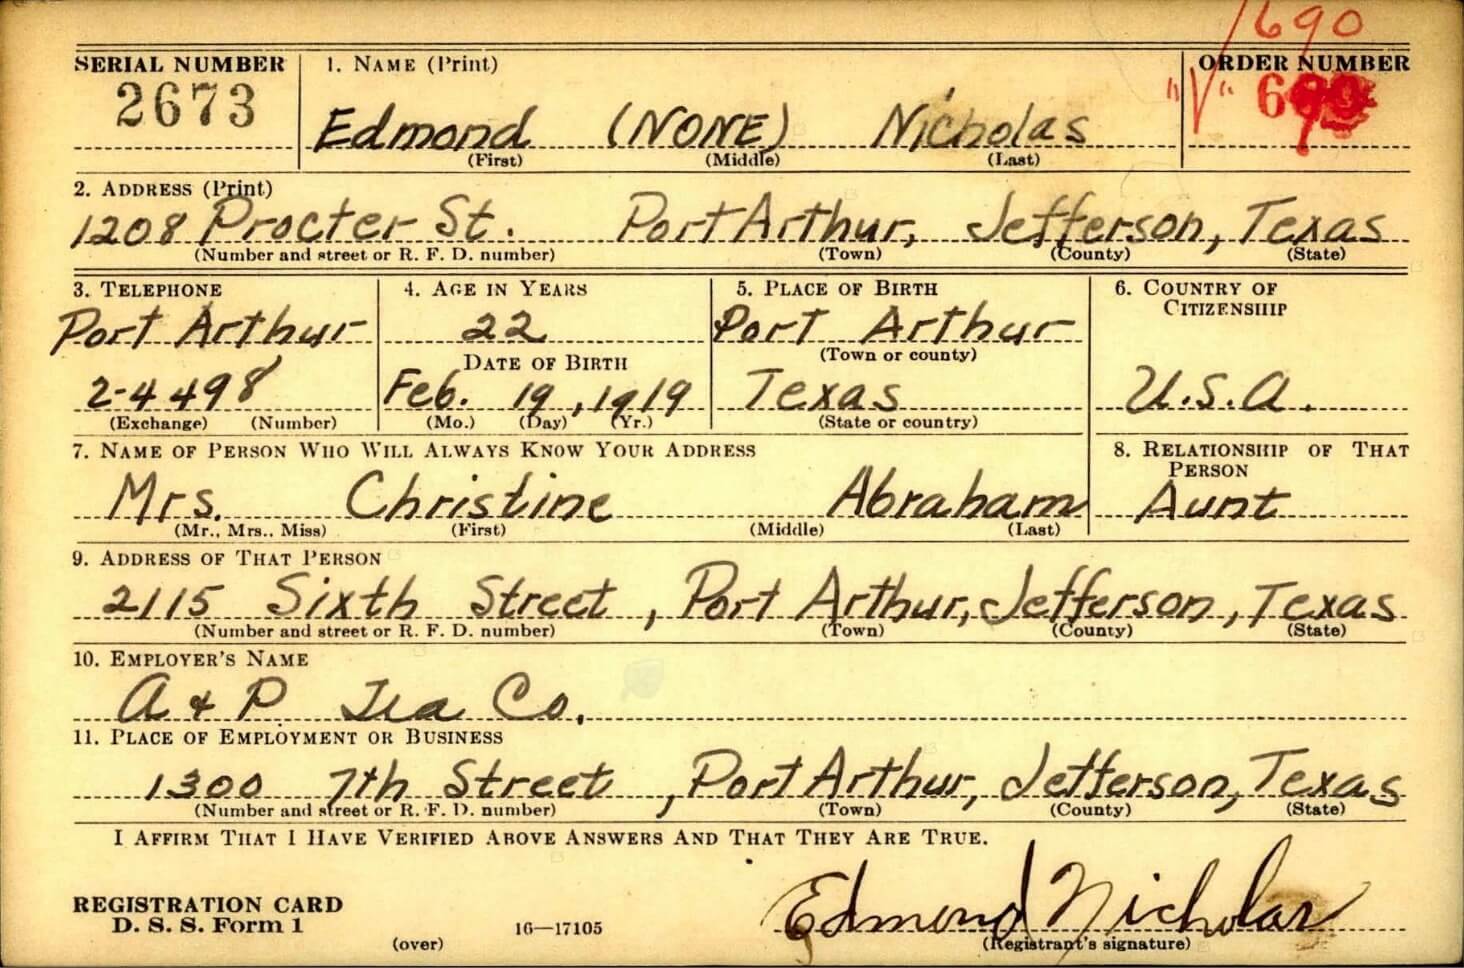 1690
SERIAL NUMBER 1. NAME (Print) ORDER NUMBER
2673 Edmond (NONE) Nicholas "V"
(First) (Middle) (Last)
2. ADDRESS (Print)
1208 Procter St. Port Arthur, Jefferson, Texas
(Number and street or R. F. D. number) (Town) (County) (State)
3. TELEPHONE 4. AGE IN YEARS 5. PLACE OF BIRTH 6. COUNTRY OF CITIZENSHIP
Port Arthur 22 Port Arthur
DATE OF BIRTH (Town or county)
2-4498 Feb. 19, 1919 Texas U.S.A.
(Exchange) (Number) (Mo.) (Day) (Yr.) (State or country)
7. NAME OF PERSON WHO WILL ALWAYS KNOW YOUR ADDRESS 8. RELATIONSHIP OF THAT PERSON
Mrs. Christine Abraham Aunt
(Mr., Mrs., Miss) (First) (Middle) (Last)
9. ADDRESS OF THAT PERSON
2115 Sixth Street, Port Arthur, Jefferson, Texas
(Number and street or R. F. D. number) (Town) (County) (State)
10. EMPLOYER'S NAME
A & P Tea Co.
11. PLACE OF EMPLOYMENT OR BUSINESS
1300 7th Street, Port Arthur, Jefferson, Texas
(Number and street or R. F. D. number) (Town) (County) (State)
I AFFIRM THAT I HAVE VERIFIED ABOVE ANSWERS AND THAT THEY ARE TRUE.
Edmond Nicholas
REGISTRATION CARD
D. S. S. Form 1 16—17105
(over) (Registrant's signature)